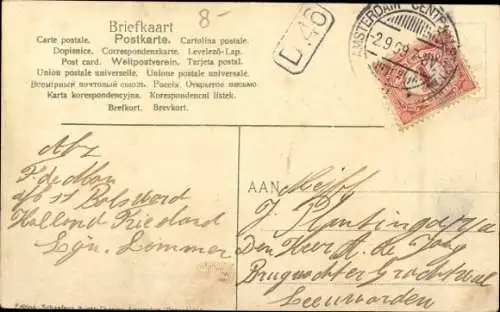 8-
Briefkaart
Postkarte.
Carte postale. Cartolina postale.
Dopisnice. Correspondenzkarte. Levelező-Lap.
Post card. Weltpostverein. Tarjeta postal.
Union postale universelle. Unione postale universale.
Всемірный почтовый союзъ. Россія. Открытое письмо.
Karta korespondencyjna. Korespondenční lístek.
Brefkort. Brevkort.
D 46
AMSTERDAM CENTR
2.9.09
Afz
F. de
a/o ss Bolsward
Holland Friesland
Lgn. Lemmer
AAN Mejff
J.
Den Heer H. de Jong
Brugwachter Grachtswal
Leeuwarden